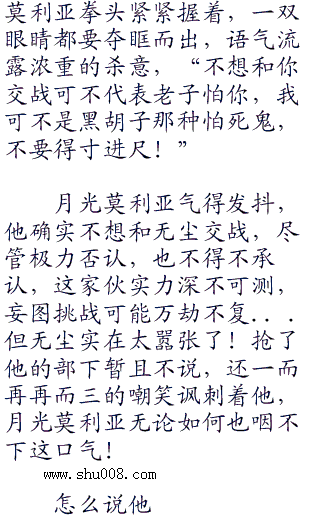 莫利亚拳头紧紧握着，一双
眼睛都要夺眶而出，语气流
露浓重的杀意，“不想和你
交战可不代表老子怕你，我
可不是黑胡子那种怕死鬼，
不要得寸进尺！”
月光莫利亚气得发抖，
他确实不想和无尘交战，尽
管极力否认，也不得不承
认，这家伙实力深不可测，
妄图挑战可能万劫不复...
但无尘实在太嚣张了！抢了
他的部下暂且不说，还一而
再再而三的嘲笑讽刺着他，
月光莫利亚无论如何也咽不
下这口气！
www.shu008.com
怎么说他